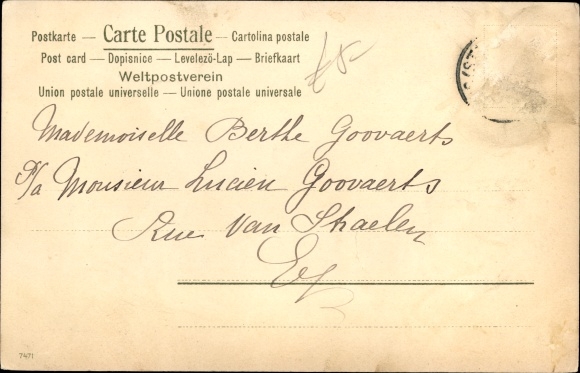 Postkarte — Carte Postale — Cartolina postale
Post card — Dopisnice — Levelező-Lap — Briefkaart
Weltpostverein
Union postale universelle — Unione postale universale
Mademoiselle Berthe Goovaerts
P/a Monsieur Lucien Goovaerts
Rue Van Straelen
7471